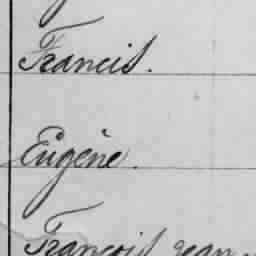 Francis.
Eugène.
François Jean